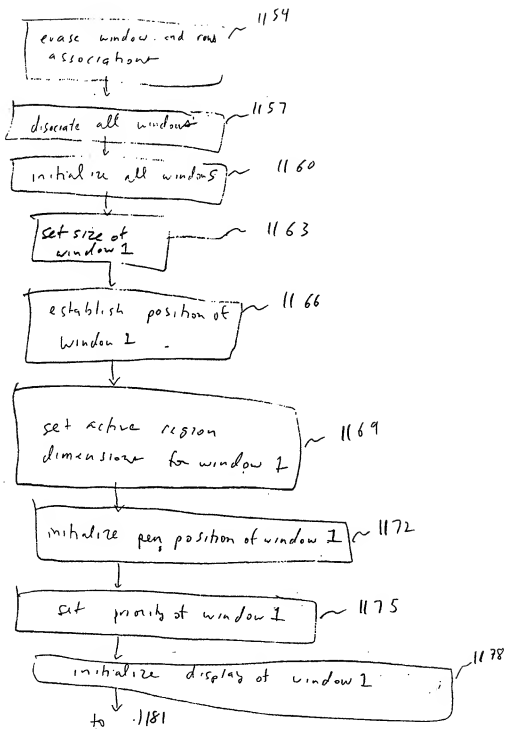 1154
erase window and rows
associations
1157
disociate all windows
1160
initialize all windows
1163
set size of
window 1
1166
establish position of
window 1
1169
set active region
dimensions for window 1
1172
initialize pen position of window 1
1175
set priority of window 1
1178
initialize display of window 1
to 1181